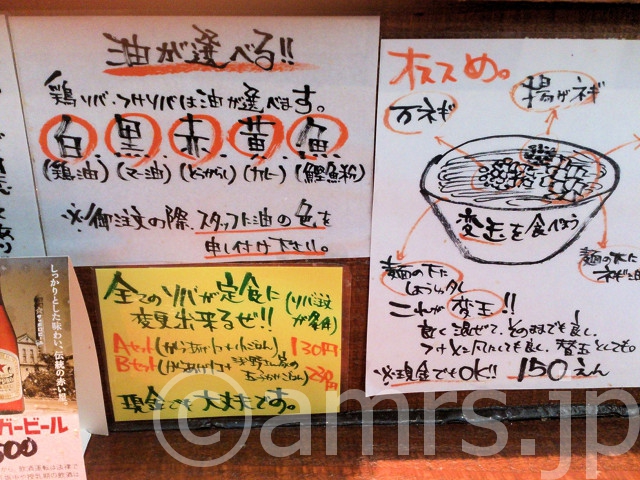 油が選べる!!
鶏ソバ・つけソバは油が選べます。
白 黒 赤 黄 魚
(鶏油) (マー油) (とうがらし) (カレー) (鰹魚粉)
※御注文の際、スタッフに油の色を
申し付け下さい。
オススめ。
万ネギ
揚げネギ
変玉を食べよう
麺の下に
しょうゆダレ
麺の下に
ネギ油
これが変玉!!
良く混ぜて、そのままでも良し、
つけ〆にしても良し、替玉としても。
※現金でもOK!! 150えん
全てのソバが定食に
変更出来るぜ!!
(ソバ注文が条件)
Aセット(から揚げ1ヶ+小ごはん) 130円
Bセット(から揚げ1ヶ+
230円
現金でも大丈夫です。
しっかりとした味わい。伝統の赤い星。
ガービール
500
©amrs.jp